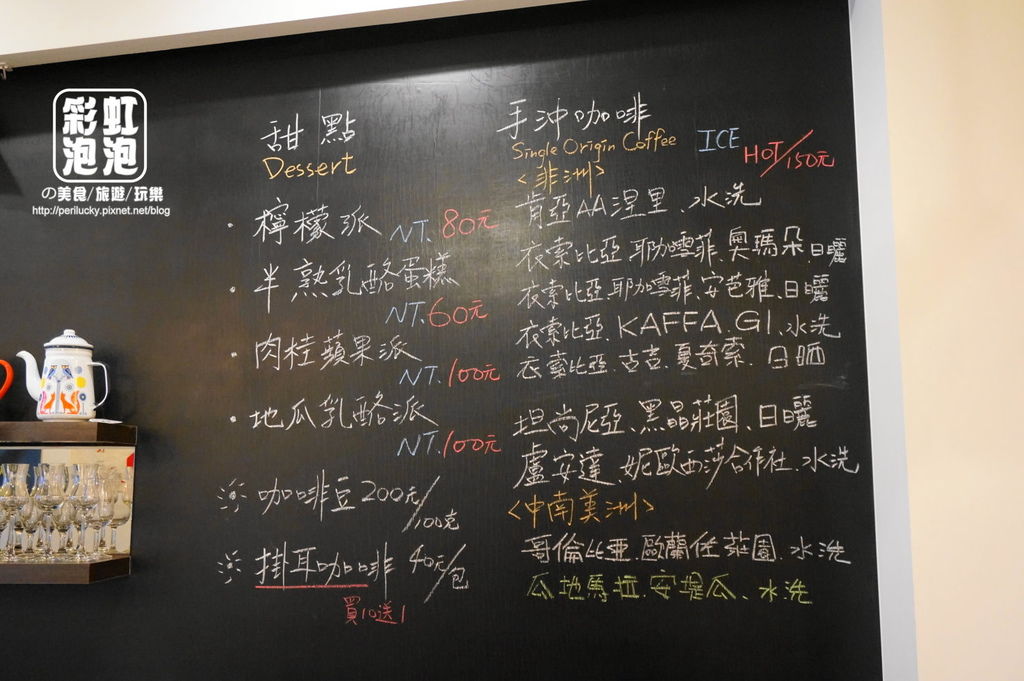 彩虹
泡泡
の美食/旅遊/玩樂
http://perilucky.pixnet.net/blog
甜點
Dessert
檸檬派 NT.80元
半熟乳酪蛋糕
NT.60元
肉桂蘋果派
NT.100元
地瓜乳酪派
NT.100元
咖啡豆200元/100克
掛耳咖啡 40元/包
買10送1
手沖咖啡 ICE
Single Origin Coffee HOT/150元
<非洲>
肯亞AA涅里、水洗
衣索比亞.耶加雪菲.奧瑪朵.日曬
衣索比亞.耶加雪菲.安芭雅.日曬
衣索比亞.KAFFA.G1.水洗
衣索比亞.古吉.夏奇索.日晒
坦尚尼亞、黑晶莊園、日曬
盧安達、妮歐西莎合作社.水洗
<中南美洲>
哥倫比亞.歐蘭任莊園.水洗
瓜地馬拉.安堤瓜、水洗